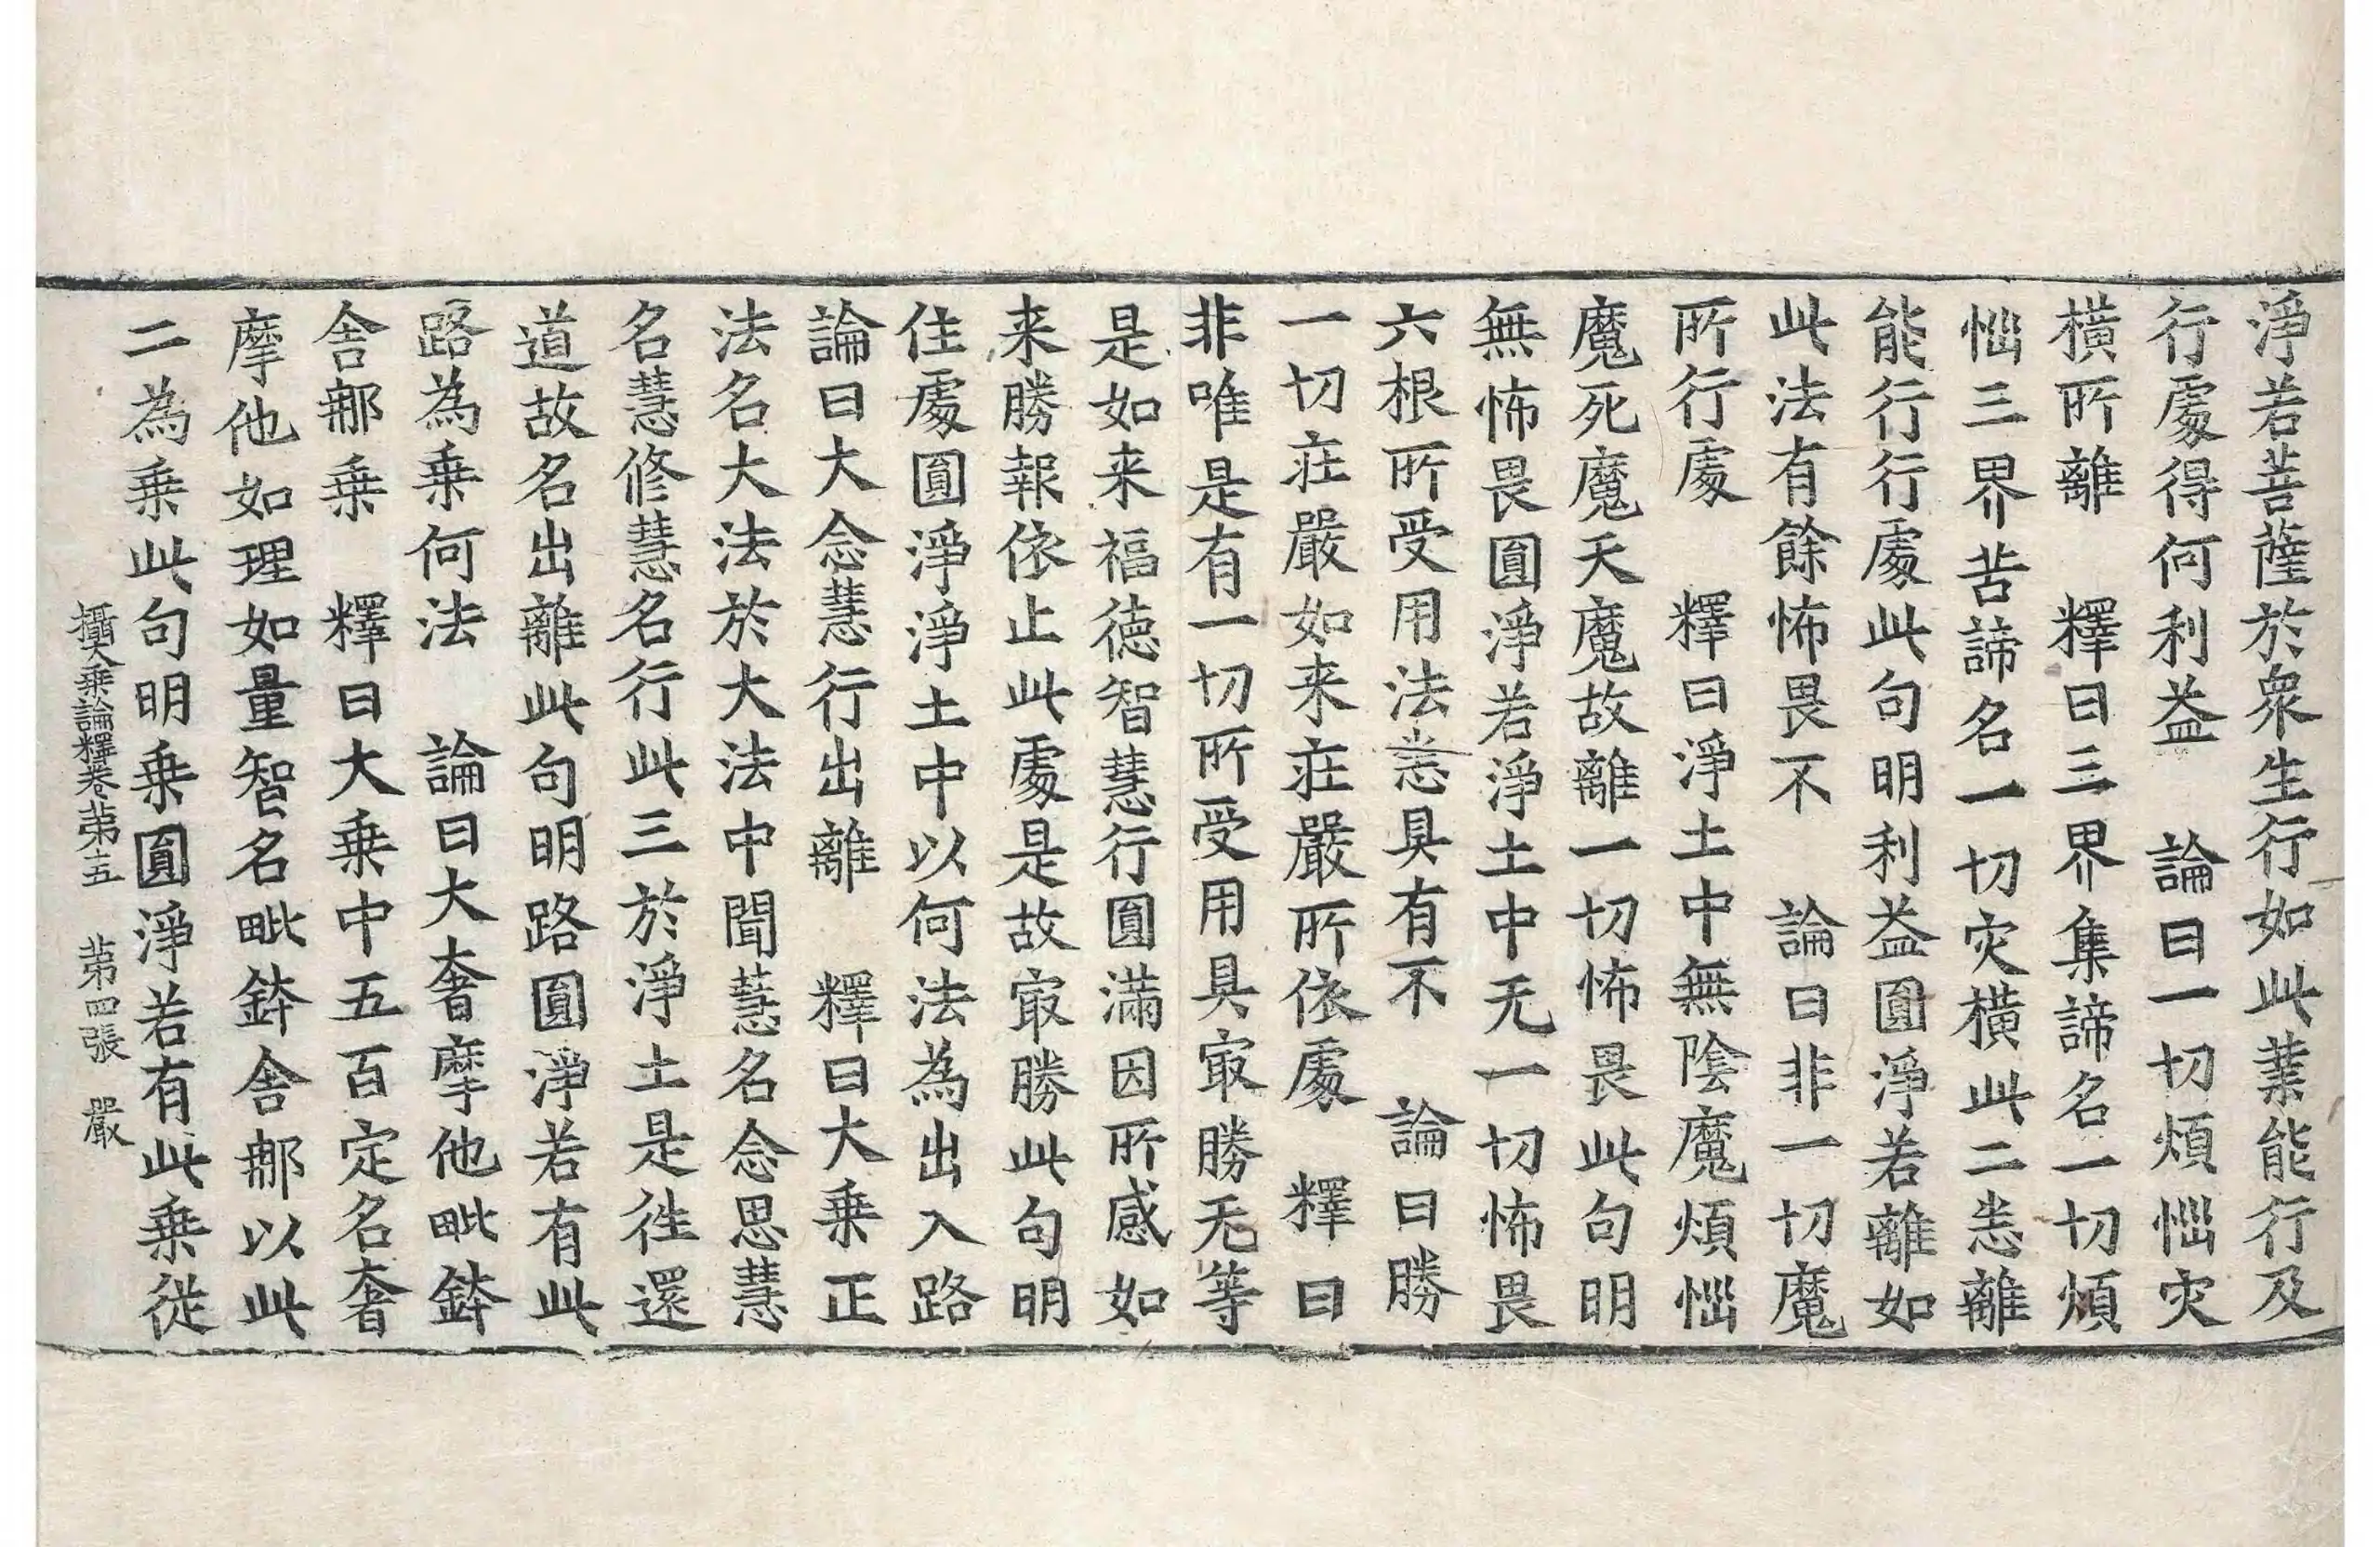 淨若菩薩於衆生行如此業能行及
行處得何利益　論曰一切煩惱灾
橫所離　釋曰三界集諦名一切煩
惱三界苦諦名一切灾橫此二恙離
能行行處此句明利益圓淨若離如
此法有餘怖畏不　論曰非一切魔
所行處　釋曰淨土中無陰魔煩惱
魔死魔天魔故離一切怖畏此句明
無怖畏圓淨若淨土中无一切怖畏
六根所受用法恙具有不　論曰勝
一切莊嚴如来莊嚴所依處　釋曰
非唯是有一切所受用具㝡勝无等
是如来福德智慧行圓滿因所感如
来勝報依止此處是故㝡勝此句明
住處圓淨淨土中以何法為出入路
論曰大念慧行出離　釋曰大乗正
法名大法於大法中聞慧名念思慧
名慧修慧名行此三於淨土是徃還
道故名出離此句明路圓淨若有此
路為乗何法　論曰大奢摩他毗鉢
舍那乗　釋曰大乗中五百定名奢
摩他如理如量智名毗鉢舍那以此
二為乗此句明乗圓淨若有此乗從
攝大乗論釋卷苐十五　苐四張　嚴